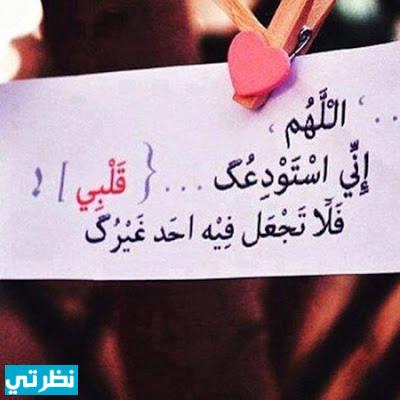 ..‘ الْلَّهُم ‘
إِنِّي اسْتَوْدِعُگ ...{ قَلْبِي } !
فَلَا تَجْعَل فِيْه احَد غَيْرُگ
نظرتي